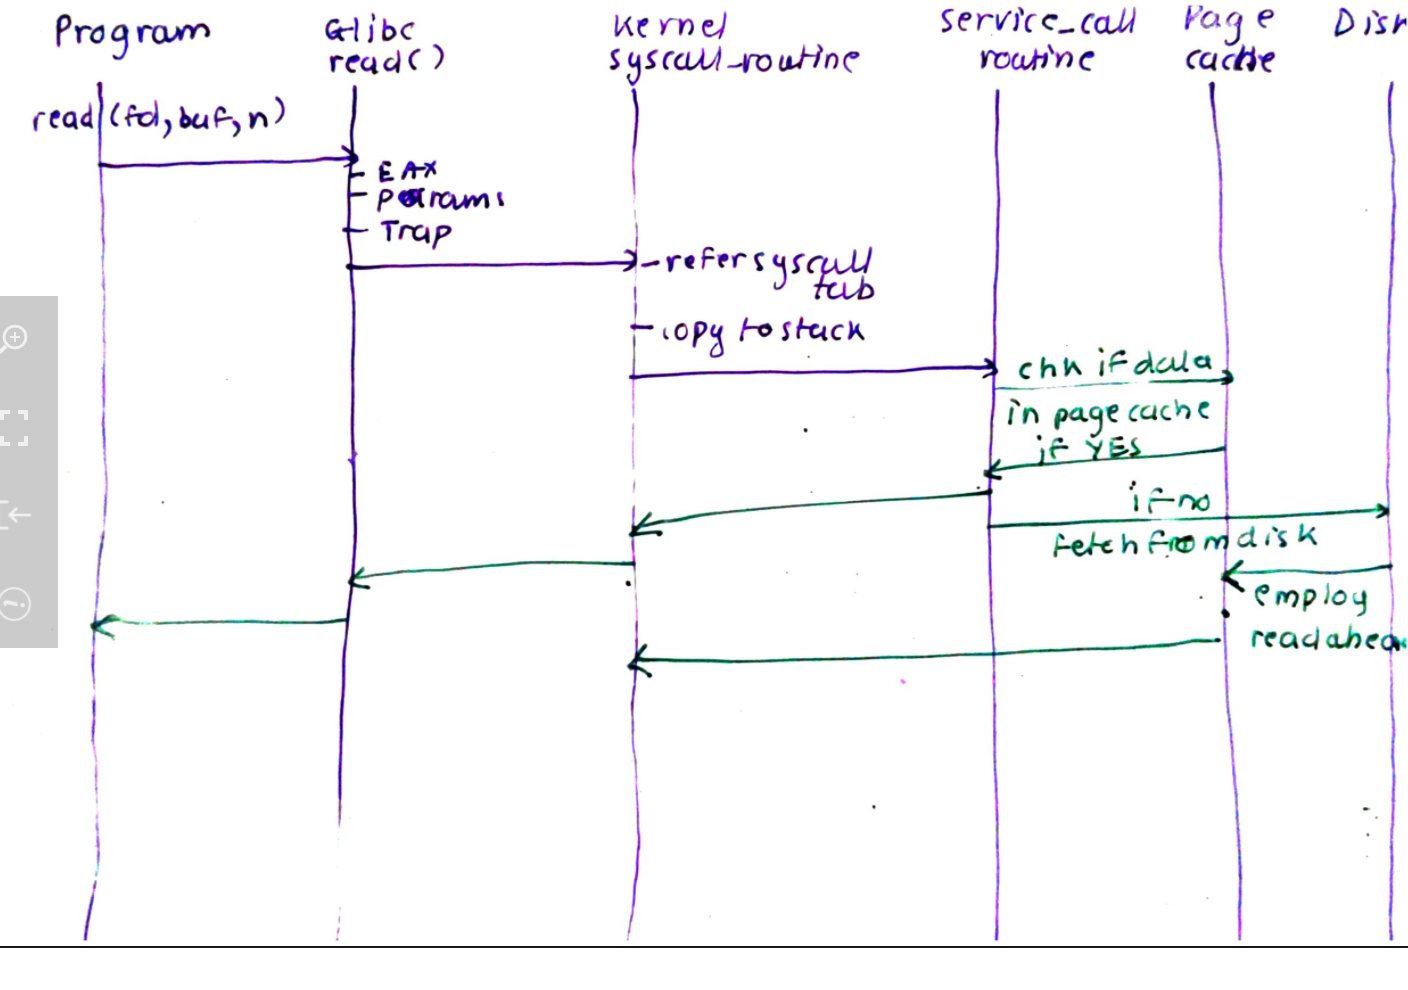 Program
Glibc
read()
Kernel
syscall_routine
service_call
routine
Page
cache
Disk
read(fd, buf, n)
- EAX
- Params
- Trap
- refer syscall
tab
- copy to stack
chk if data
in page cache
if YES
if no
fetch from disk
employ
readahea